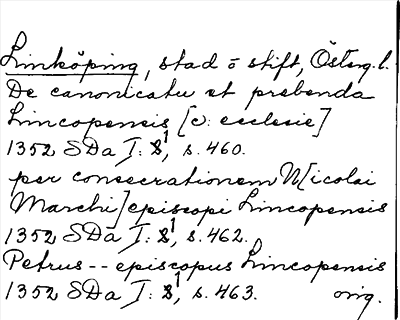 Linköping, stad o stift, Österg. l.
De canonicatu et prebenda
Lincopensis [v: ecclesie]
1352 SDa I: 1, s. 460.
per consecrationem N[icolai
Marchi] episcopi Lincopensis
1352 SDa I: 1, s. 462.
Petrus -- episcopus Lincopensis
1352 SDa I: 1, s. 463. orig.